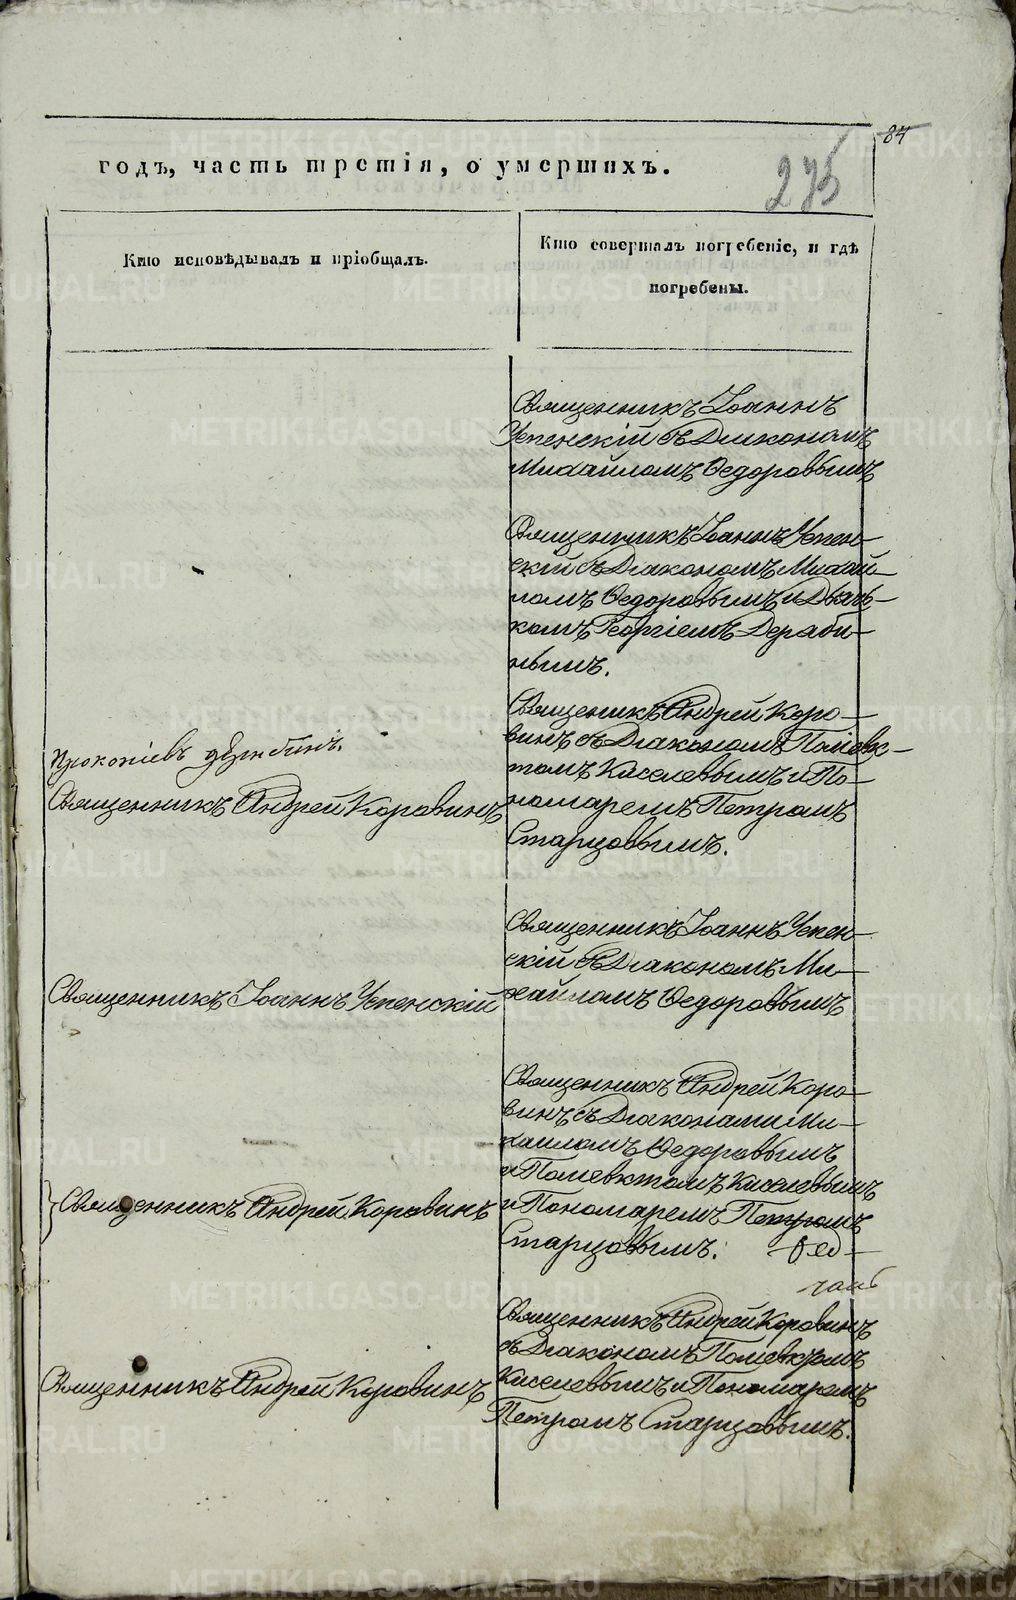 84
275
годъ, часть третія, о умершихъ.
Кто исповѣдывалъ и пріобщалъ.
Кто совершалъ погребеніе, и гдѣ
погребены.
Священникъ Іоаннъ
Успенскій съ Діакономъ
Михайломъ Ѳедоровымъ
Священникъ Іоаннъ Успен-
скій съ Діакономъ Михай-
ломъ Ѳедоровымъ и Дьяч-
комъ Георгіемъ Деряби-
нымъ.
Прокопіевъ
Священникъ Андрей Коровинъ
Священикъ Андрей Коро-
винъ съ Діакономъ Поліевк-
томъ Киселевымъ и По-
номаремъ Петромъ
Старцовымъ.
Священникъ Іоаннъ Успенскій
Священникъ Іоаннъ Успен-
скій съ Діакономъ Ми-
хайломъ Ѳедоровымъ
Священникъ Андрей Коровинъ
Священникъ Андрей Коро-
винъ съ Діаконами Ми-
хаиломъ Ѳедоровымъ
и Поліевктомъ Киселевымъ
и Пономаремъ Петромъ
Старцовымъ.
Священникъ Андрей Коровинъ
Священникъ Андрей Коровинъ
съ Діакономъ Поліевктомъ
Киселевымъ и Пономаремъ
Петромъ Старцовымъ.
METRIKI.GASO-URAL.RU